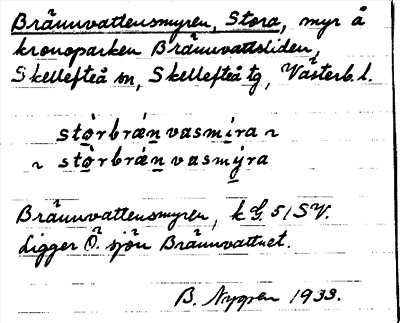 Brännvattensmyren, Stora, myr å
kronoparken Brännvattsliden,
Skellefteå sn, Skellefteå tg, Västerb. l.
stòrbrán vasmira ~
~ stòrbrán vasmýra
Brännvattensmyren, k G. 51 SV.
Ligger Ö. sjön Brännvattnet.
B. Nyppen 1933.